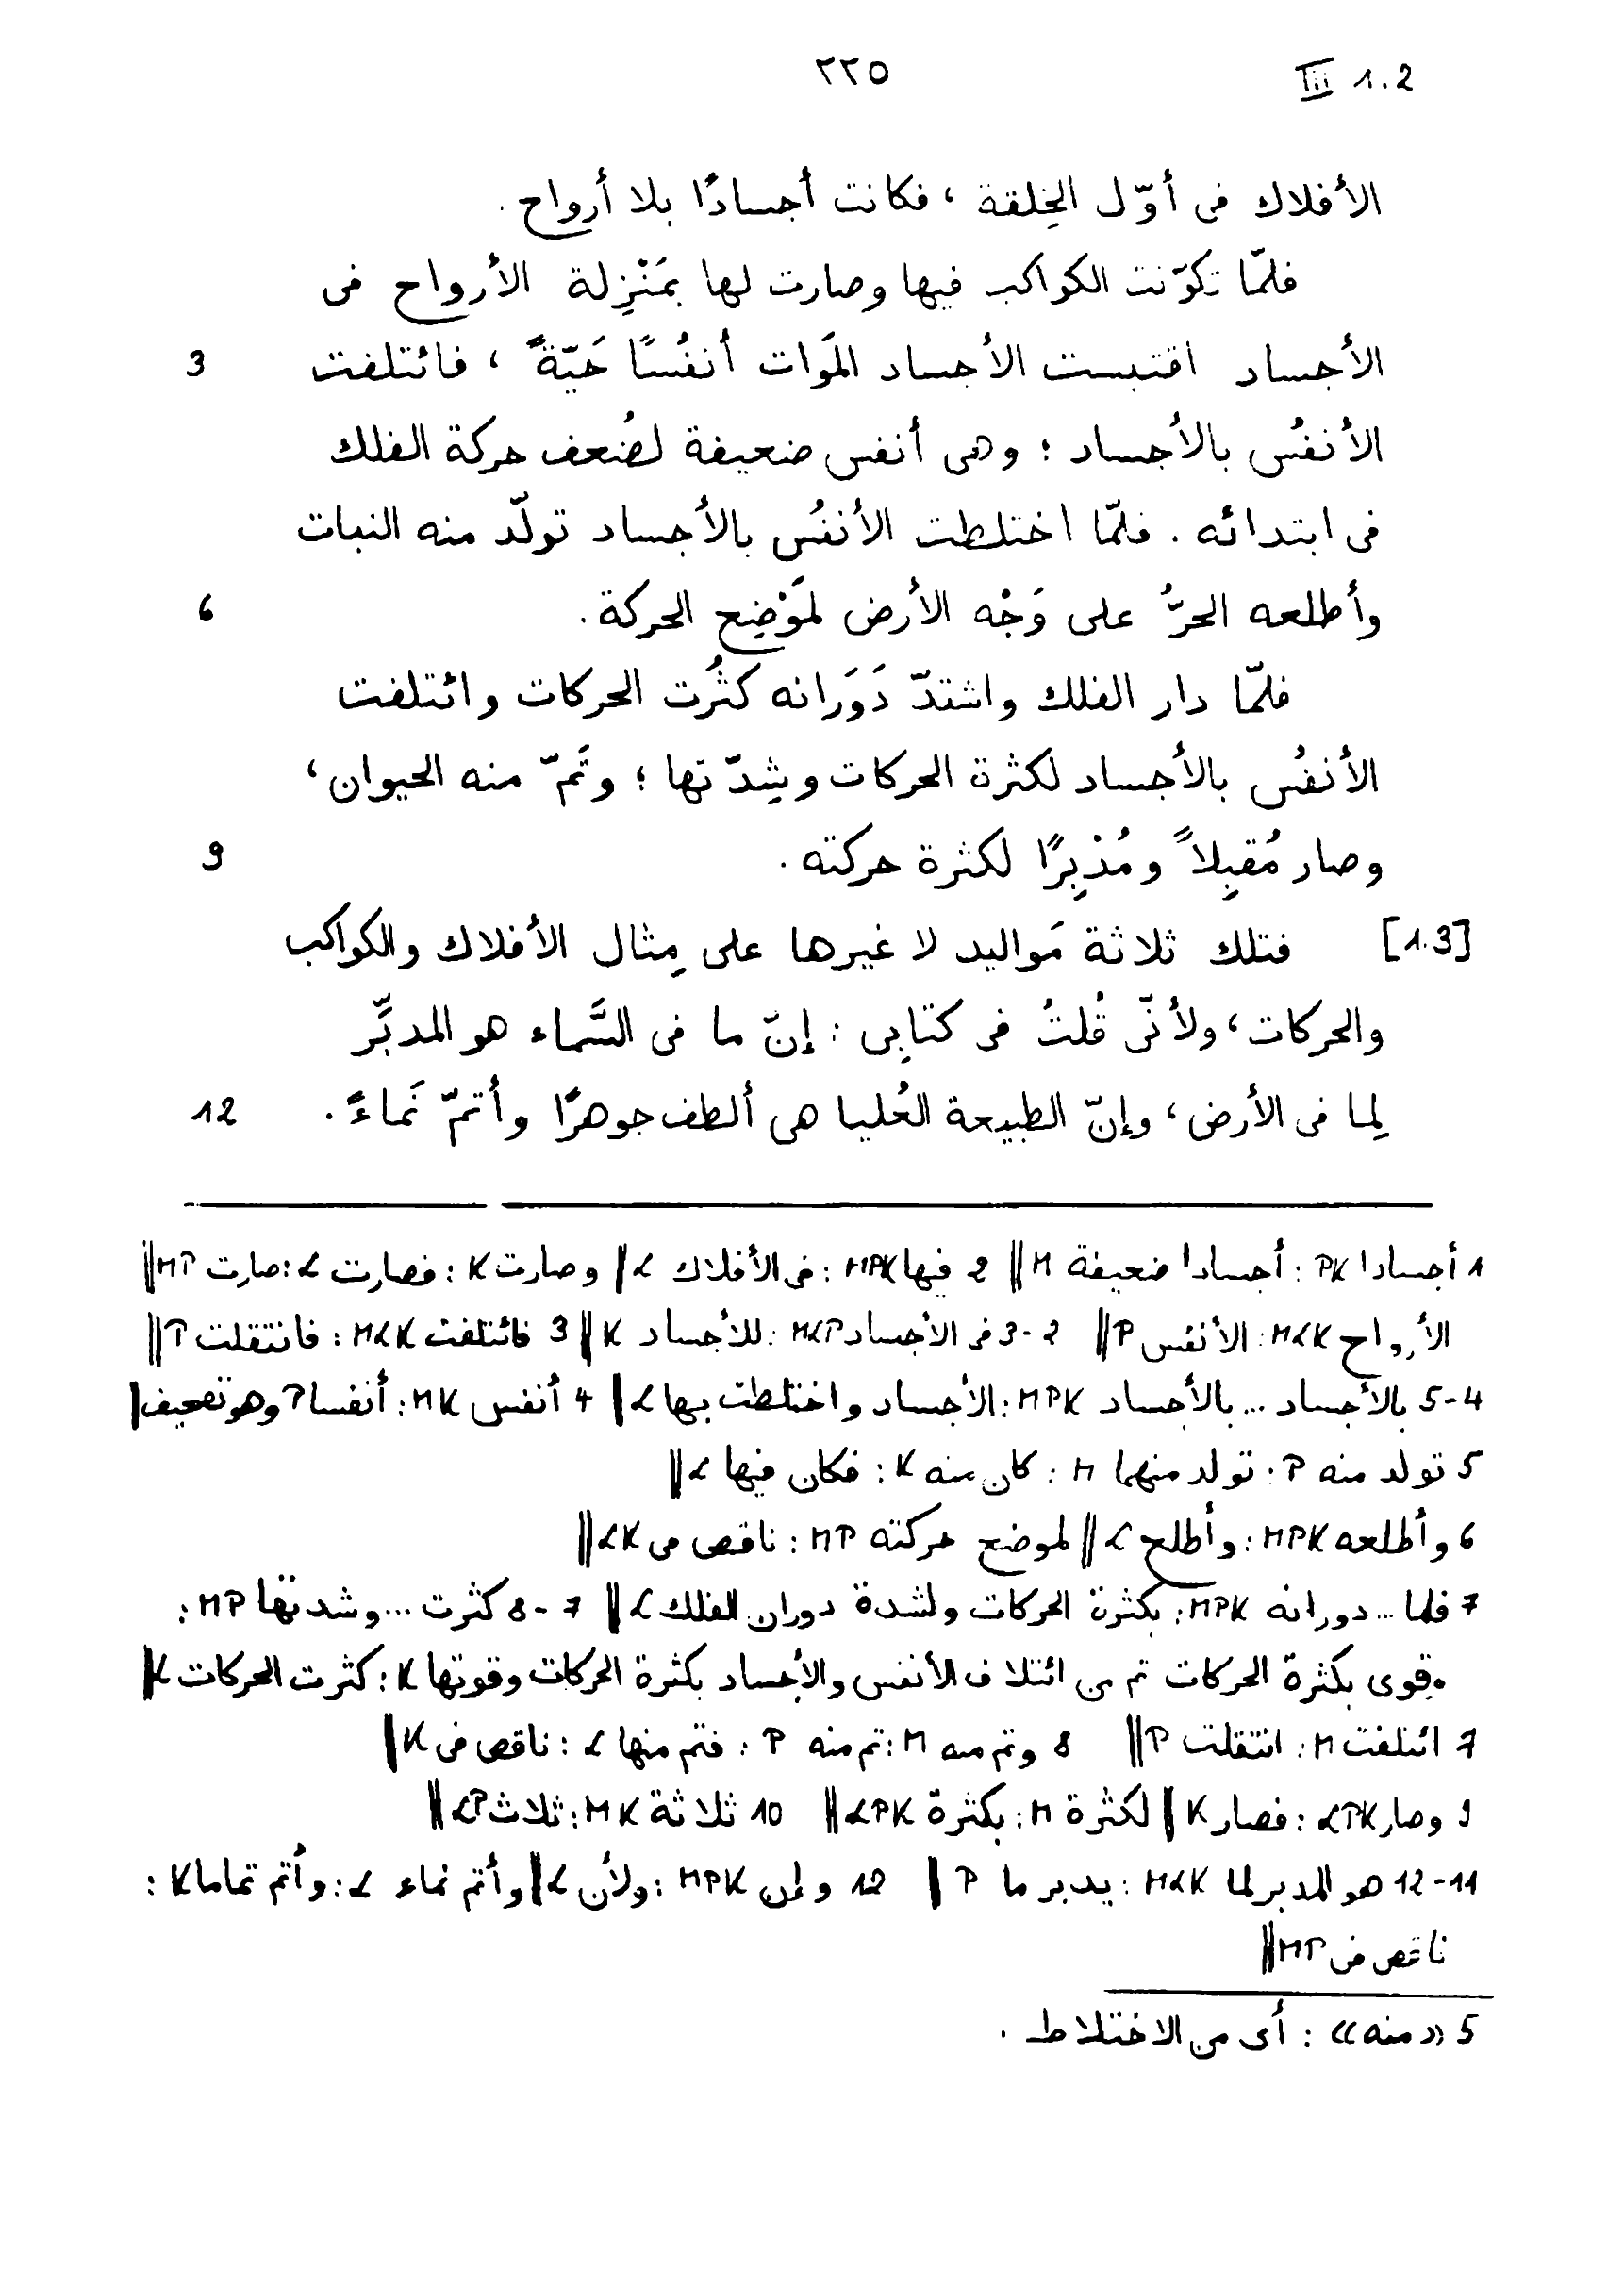 ٢٢٥ III 1.2
الأفلاك فى أوّل الخِلقة ، فكانت أجسادًا بلا أرواح .
فلمّا تكوّنت الكواكب فيها وصارت لها بمَنْزِلة الأرواح فى
الأجساد اقتبست الأجساد المَوات أنفُسًا حَيّةً ، فائتلفت 3
الأنفُس بالأجساد ؛ وهى أنفس ضعيفة لضُعف حركة الفلك
فى ابتدائه . فلمّا اختلطت الأنفُس بالأجساد تولّد منه النبات
وأطلعه الحرُّ على وَجْه الأرض لمَوْضِع الحركة . 6
فلمّا دار الفلك واشتدّ دَوَرانه كثُرت الحركات وائتلفت
الأنفُس بالأجساد لكثرة الحركات وشِدّتها ؛ وتَمّ منه الحيوان ،
وصار مُقبِلاً ومُدْبِرًا لكثرة حركته . 9
[1.3] فتلك ثلاثة مَواليد لا غيرها على مِثال الأفلاك والكواكب
والحركات ، ولأنّى قُلتُ فى كتابِى : إنّ ما فى السَّماء هو المدبِّر
لِما فى الأرض ، وإنّ الطبيعة العُليا هى ألطف جوهرًا وأتمّ نَماءً . 12
1 أجسادا PK : أجسادا ضعيفة M || 2 فيها MPK : فى الأفلاك L || وصارت K : فصارت L : صارت MP ||
الأرواح MLK : الأنفس P || 2-3 فى الأجساد MLP : للأجساد K || 3 فائتلفت MLK : فانتقلت P ||
4-5 بالأجساد ... بالأجساد MPK : الأجساد واختلطت بها L || 4 أنفس MK : أنفسا P وهو تصحيف ||
5 تولد منه P : تولد منهما M : كان منه K : فكان فيها L ||
6 وأطلعه MPK : وأطلع L || لموضع حركته MP : ناقص من LK ||
7 فلما ... دورانه MPK : بكثرة الحركات ولشدة دوران الفلك L || 7-8 كثرت ... وشدتها MP :
وقوى بكثرة الحركات تم من ائتلاف الأنفس والأجساد بكثرة الحركات وقوتها K : كثرت الحركات L ||
7 ائتلفت M : انتقلت P || 8 وتم منه M : تم منه P : فتم منها L : ناقص فى K ||
9 وصار LPK : فصار K || لكثرة M : بكثرة LPK || 10 ثلاثة MK : ثلاث LP ||
11-12 هو المدبر لما MLK : يدبر ما P || 12 وإن MPK : ولأن L || وأتم نماء L : وأتم تماما K :
ناقص فى MP ||
5 «منه» : أى من الاختلاط .